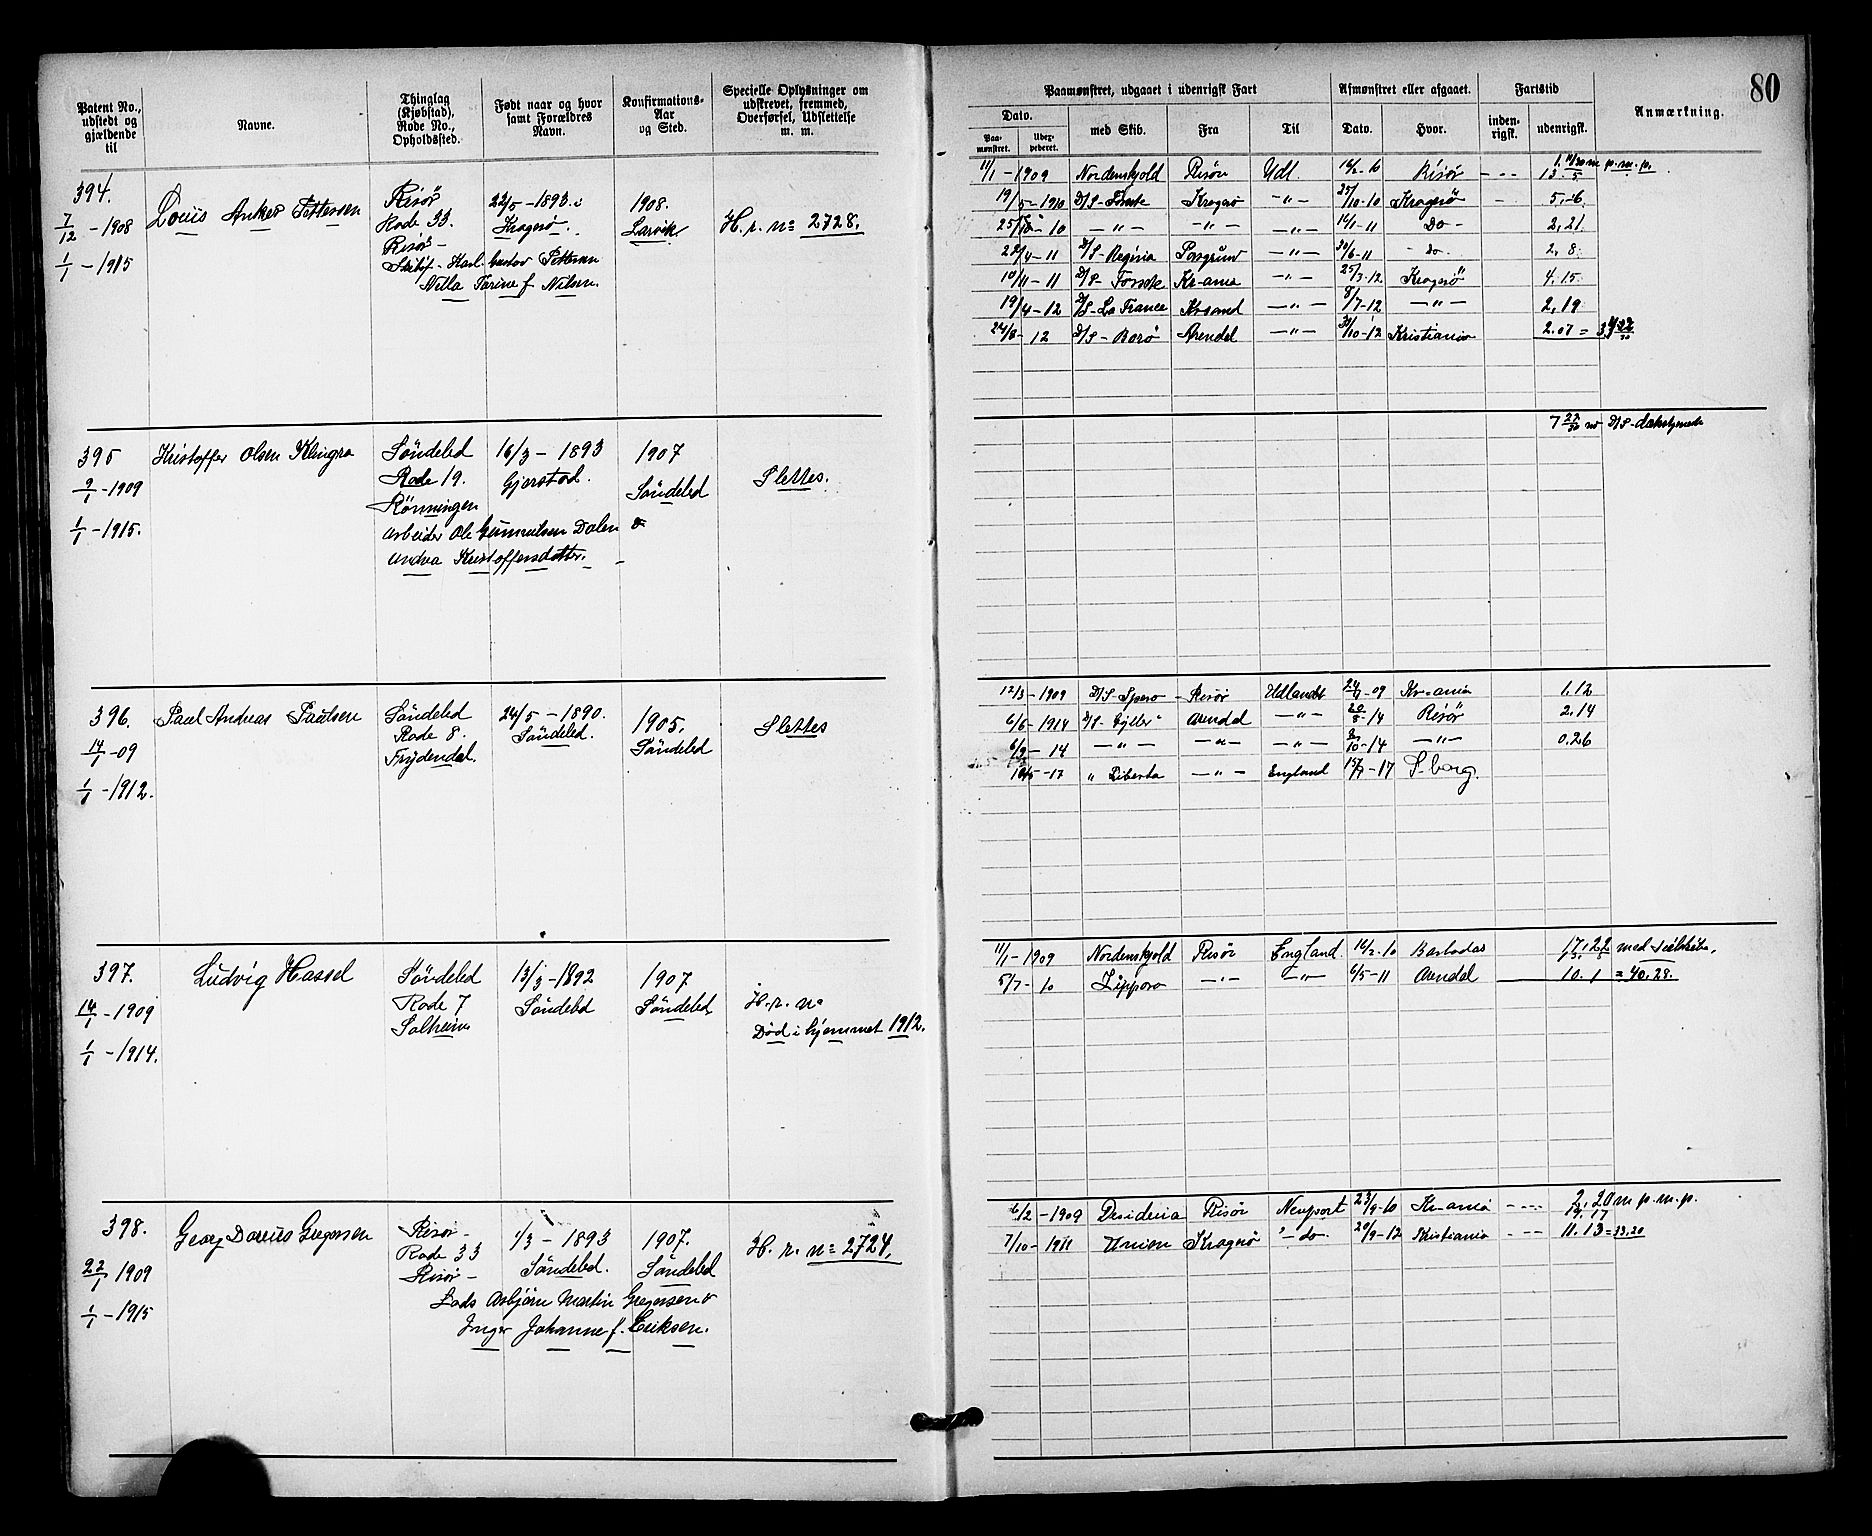 80
Patent No., udstedt og gjældende til
Navne.
Thinglag (Kjøbstad), Rode No., Opholdssted.
Født naar og hvor samt Forældres Navn.
Konfirmations-Aar og Sted.
Specielle Oplysninger om udskrevet, fremmed, Overførsel, Udslettelse m. m.
Paamønstret, udgaaet i udenrigsk Fart
Dato.
Paa-mønstret.
med Skib.
Fra
Til
Afmønstret eller afgaaet.
Dato.
Hvor.
Fartstid
inden-rigsk.
udenrigsk.
Anmærkning.
394.
7/12 - 1908
1/1 - 1915
Louis Anker Pettersen
Risør
Rode 33.
Risør -
22/5 - 1893 i
Kragerø.
1908.
Larvik
H. r. no 2728.
Karl Gustav Pettersen
Nilla Tarine f. Nilsen.
11/1 - 1909 Nordenskjold Risør Udl. 16/2 - 10 Risør - -- 13 5 m.p.m.p.
19/5 - 1910 D/S - Fonste Kragerø - " - 25/10 - 10 Kragerø - 5. 6
25/10 - 10 - " - - " - - " - 16/1 - 11 Do - 2. 21.
22/4 - 11 D/S - Regina Porsgrund - " - 30/6 - 11 - do - 2. 8.
10/11 - 11 D/S - Kr-ania - " - 25/3 - 12 Kragerø 4. 15.
19/4 - 12 D/S - La France Krsand - " - 8/7 - 12 - " - 2, 19
24/8 - 12 D/S - Borø Arendal - " - 30/10 - 12 Kristiania 2. 07 =
395
9/1 - 1909
1/1 - 1915.
Kristoffer Olsen Klingra
Söndeled
Rode 19.
Rönningen
16/3 - 1893
Gjerstad.
1907
Söndeled
Slettes.
Arbeider Ole Gunnulsen Dalen &
Andrea Kristoffersdatter.
7 27/30
396.
14/1 - 09
1/1 - 1912.
Paul Andreas Paulsen
Söndeled
Rode 8.
Frydendal.
24/5 - 1890.
Söndeled.
1905.
Söndeled
Slettes
12/3 - 1909 D/S - Spero - Risør Udlandet 24/4 - 09 Kr-ania 1. 12
6/6 - 1914 Arendal - " - 20/8 - 14 Risør 2. 14
6/9 - 14 - " - - " - - " - - 14 - " - 0.26
- 17 " Liberta - " - England - 17 S-borg.
397.
14/1 - 1909
1/1 - 1914.
Ludvig Hassel
Söndeled
Rode 7
Solheim
13/3 - 1892
Söndeled
1907
Söndeled
H. r. no
Död i hjemmet 1912.
11/1 - 1909 Nordenskjold Risør England. 16/2 - 10 Barbados
5/7 - 10 Zippora - " - - " - 6/5 - 11 Arendal 10. 1 = 40. 28.
398.
22/1 1909
1/1 - 1915
Georg Darius Gregersen
Risør -
Rode 33
Risør -
1/3 - 1893
Söndeled.
1907.
Söndeled
H. r. no 2724.
Lods Asbjörn Martin Gregersen &
Inger Johanne f. Eriksen.
6/2 - 1909 Desideria Risør Newport 23/9 - 10 Kr-ania - --- 2, 20 m.p.m.p.
7/10 - 1911 Union Kragerø " - do - 20/9 - 12 Kristiania - -- 11. 13 = 33.20